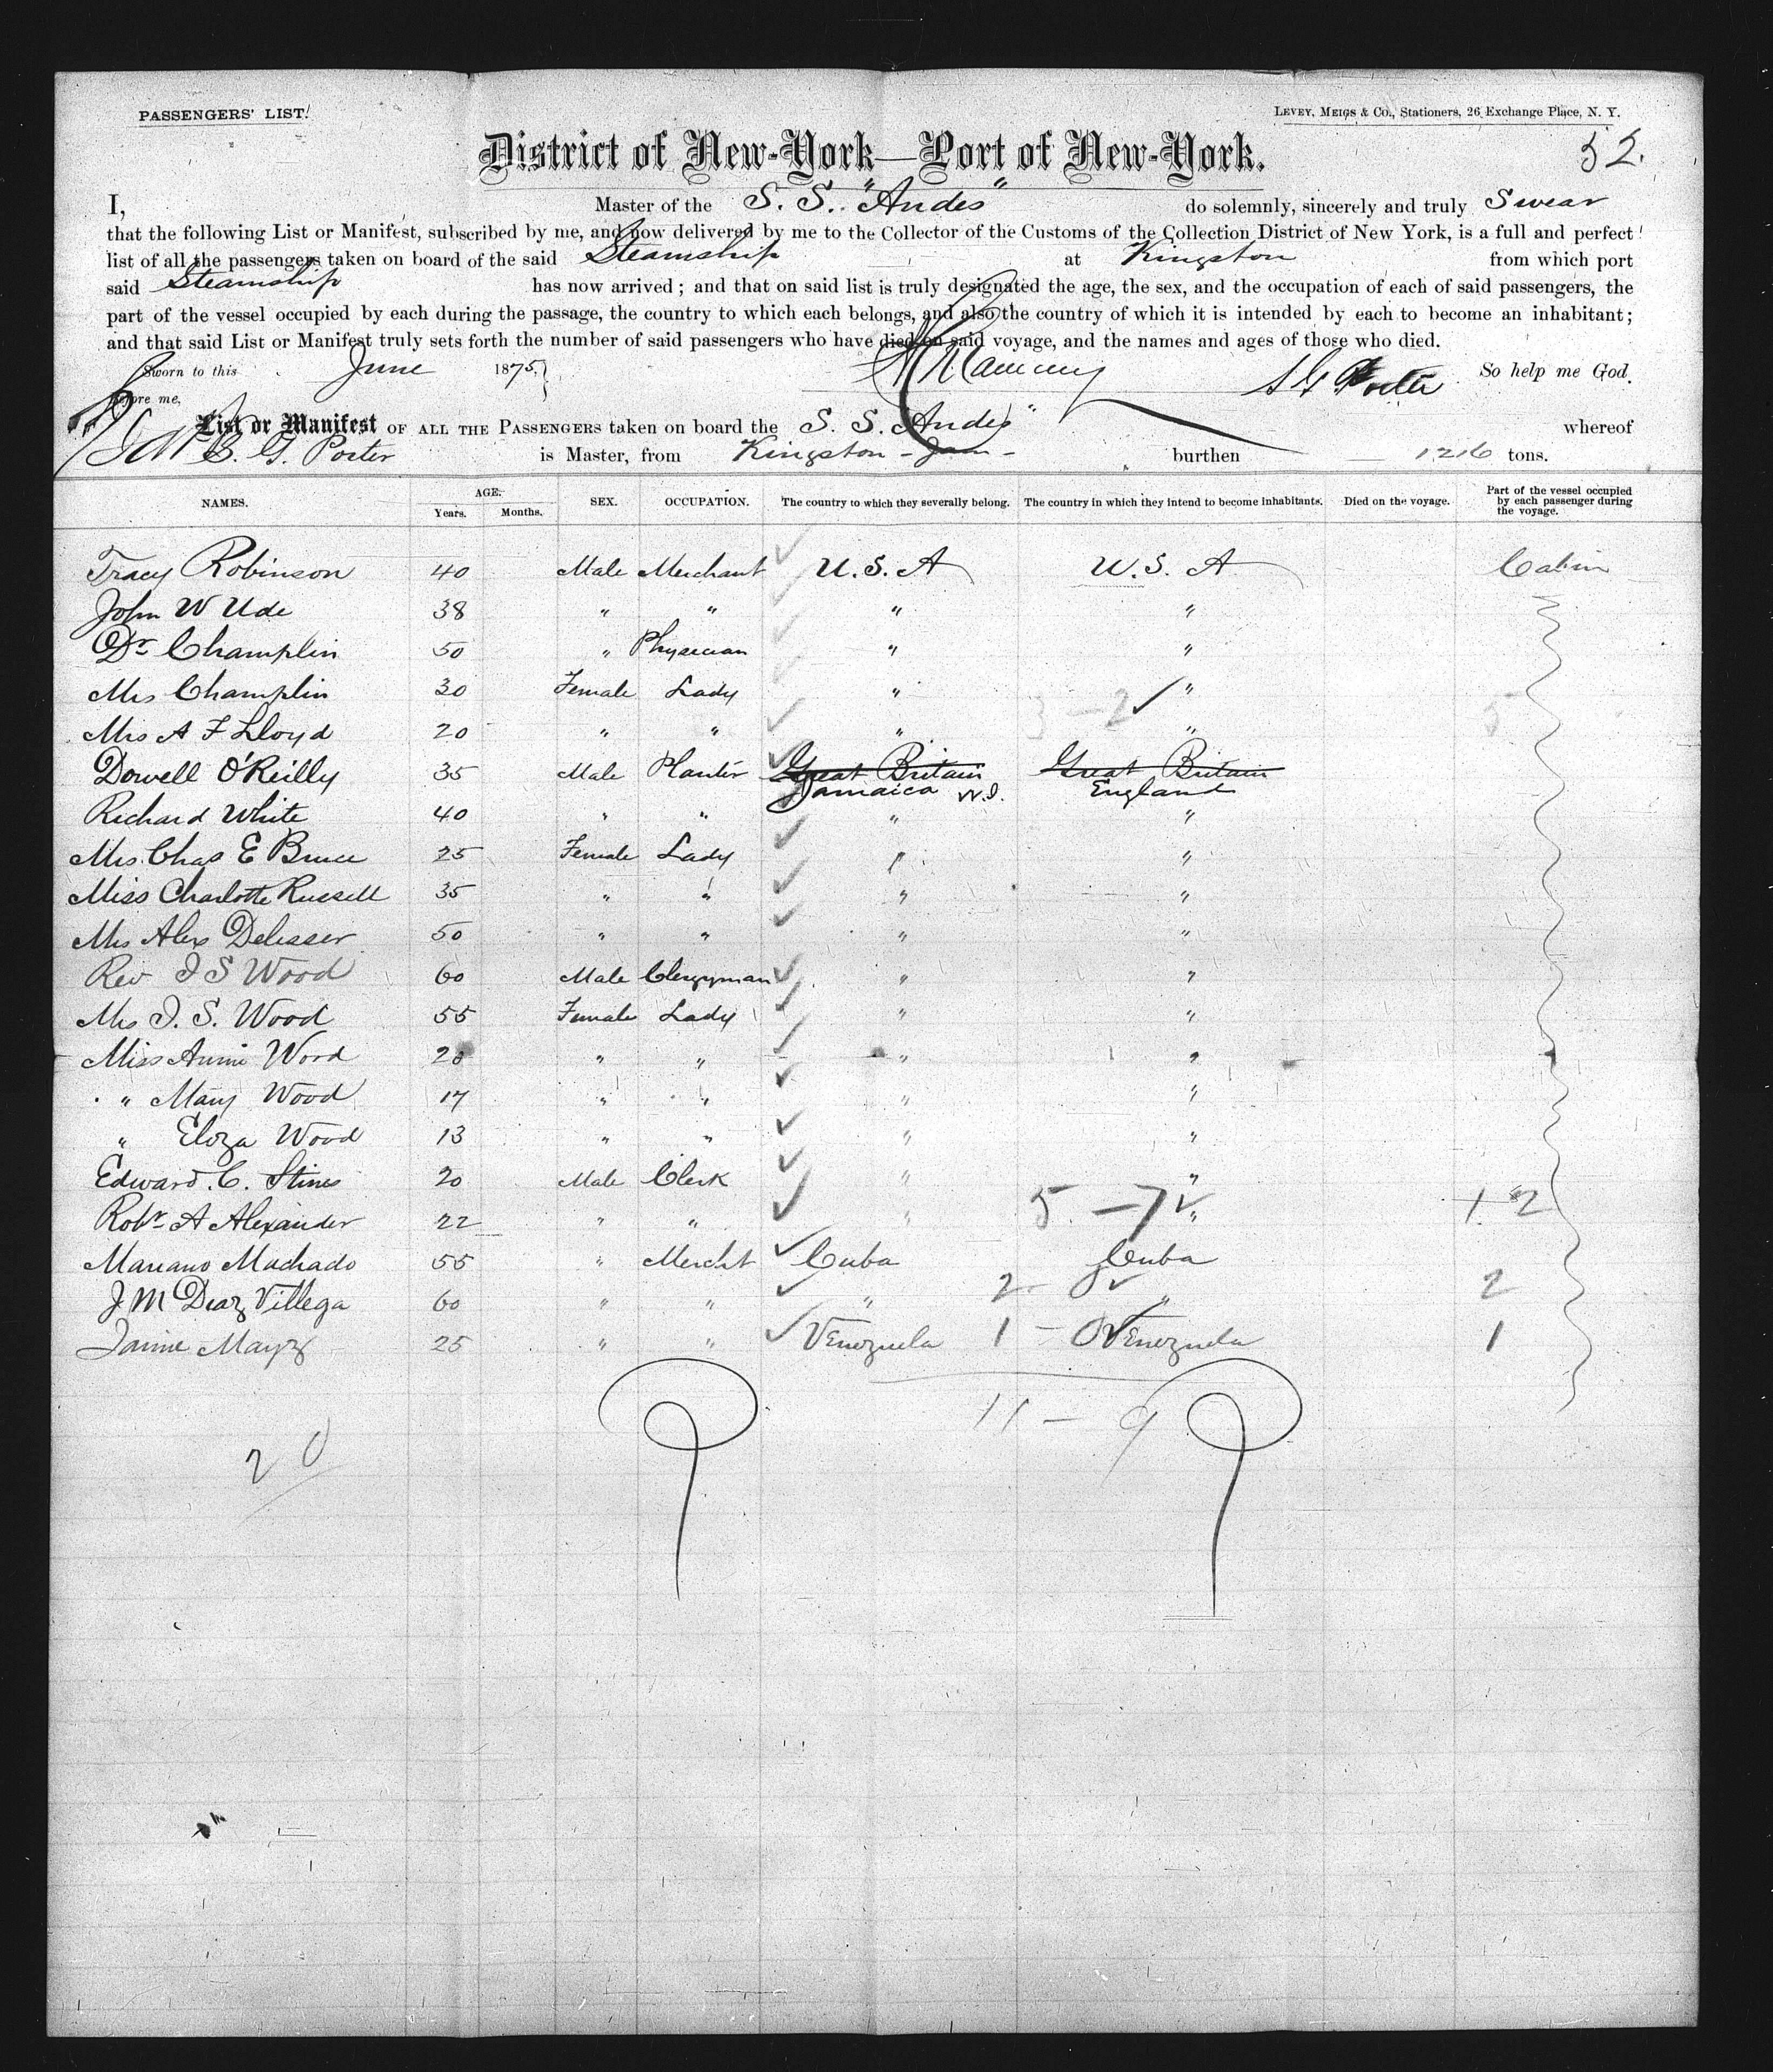 PASSENGERS' LIST.
LEVEY, MEIGS & Co., Stationers, 26 Exchange Place, N. Y.
District of New-York—Port of New-York.
52.
I, Master of the S. S. "Andes" do solemnly, sincerely and truly Swear
that the following List or Manifest, subscribed by me, and now delivered by me to the Collector of the Customs of the Collection District of New York, is a full and perfect
list of all the passengers taken on board of the said Steamship at Kingston from which port
said Steamship has now arrived; and that on said list is truly designated the age, the sex, and the occupation of each of said passengers, the
part of the vessel occupied by each during the passage, the country to which each belongs, and also the country of which it is intended by each to become an inhabitant;
and that said List or Manifest truly sets forth the number of said passengers who have died on said voyage, and the names and ages of those who died.
Sworn to this June 1875, So help me God.
Before me, Porter
List or Manifest OF ALL THE PASSENGERS taken on board the S. S. "Andes" whereof
G. Porter is Master, from Kingston - Jam - burthen 1216 tons.
NAMES. AGE. Years. Months. SEX. OCCUPATION. The country to which they severally belong. The country in which they intend to become inhabitants. Died on the voyage. Part of the vessel occupied by each passenger during the voyage.
Tracy Robinson 40 Male Merchant U. S. A U. S. A Cabin
John W Ude 38 " " " "
Dr Champlin 50 " Physician " "
Mrs Champlin 30 Female Lady " "
3 - 2 5
Mrs A F Lloyd 20 " " " "
Dowell O'Reilly 35 Male Planter Great Britain Great Britain
Jamaica W.I. England
Richard White 40 " " " "
Mrs. Chas E Bruce 25 Female Lady " "
Miss Charlotte Russell 35 " " " "
Mrs Alex Delisser 50 " " " "
Rev J S Wood 60 Male Clergyman " "
Mrs J. S. Wood 55 Female Lady " "
Miss Annie Wood 20 " " " "
" Mary Wood 17 " " " "
" Eloza Wood 13 " " " "
Edward. C. Stines 20 Male Clerk " "
Robt A Alexander 22 " " " 5 - 7 " 12
Mariano Machado 55 " Mercht Cuba Cuba
J M Diaz Villega 60 " " " 2 - 0 " 2
Jaime Mayz 25 " " Venezuela 1 - 0 Venezuela 1
11 - 9
20